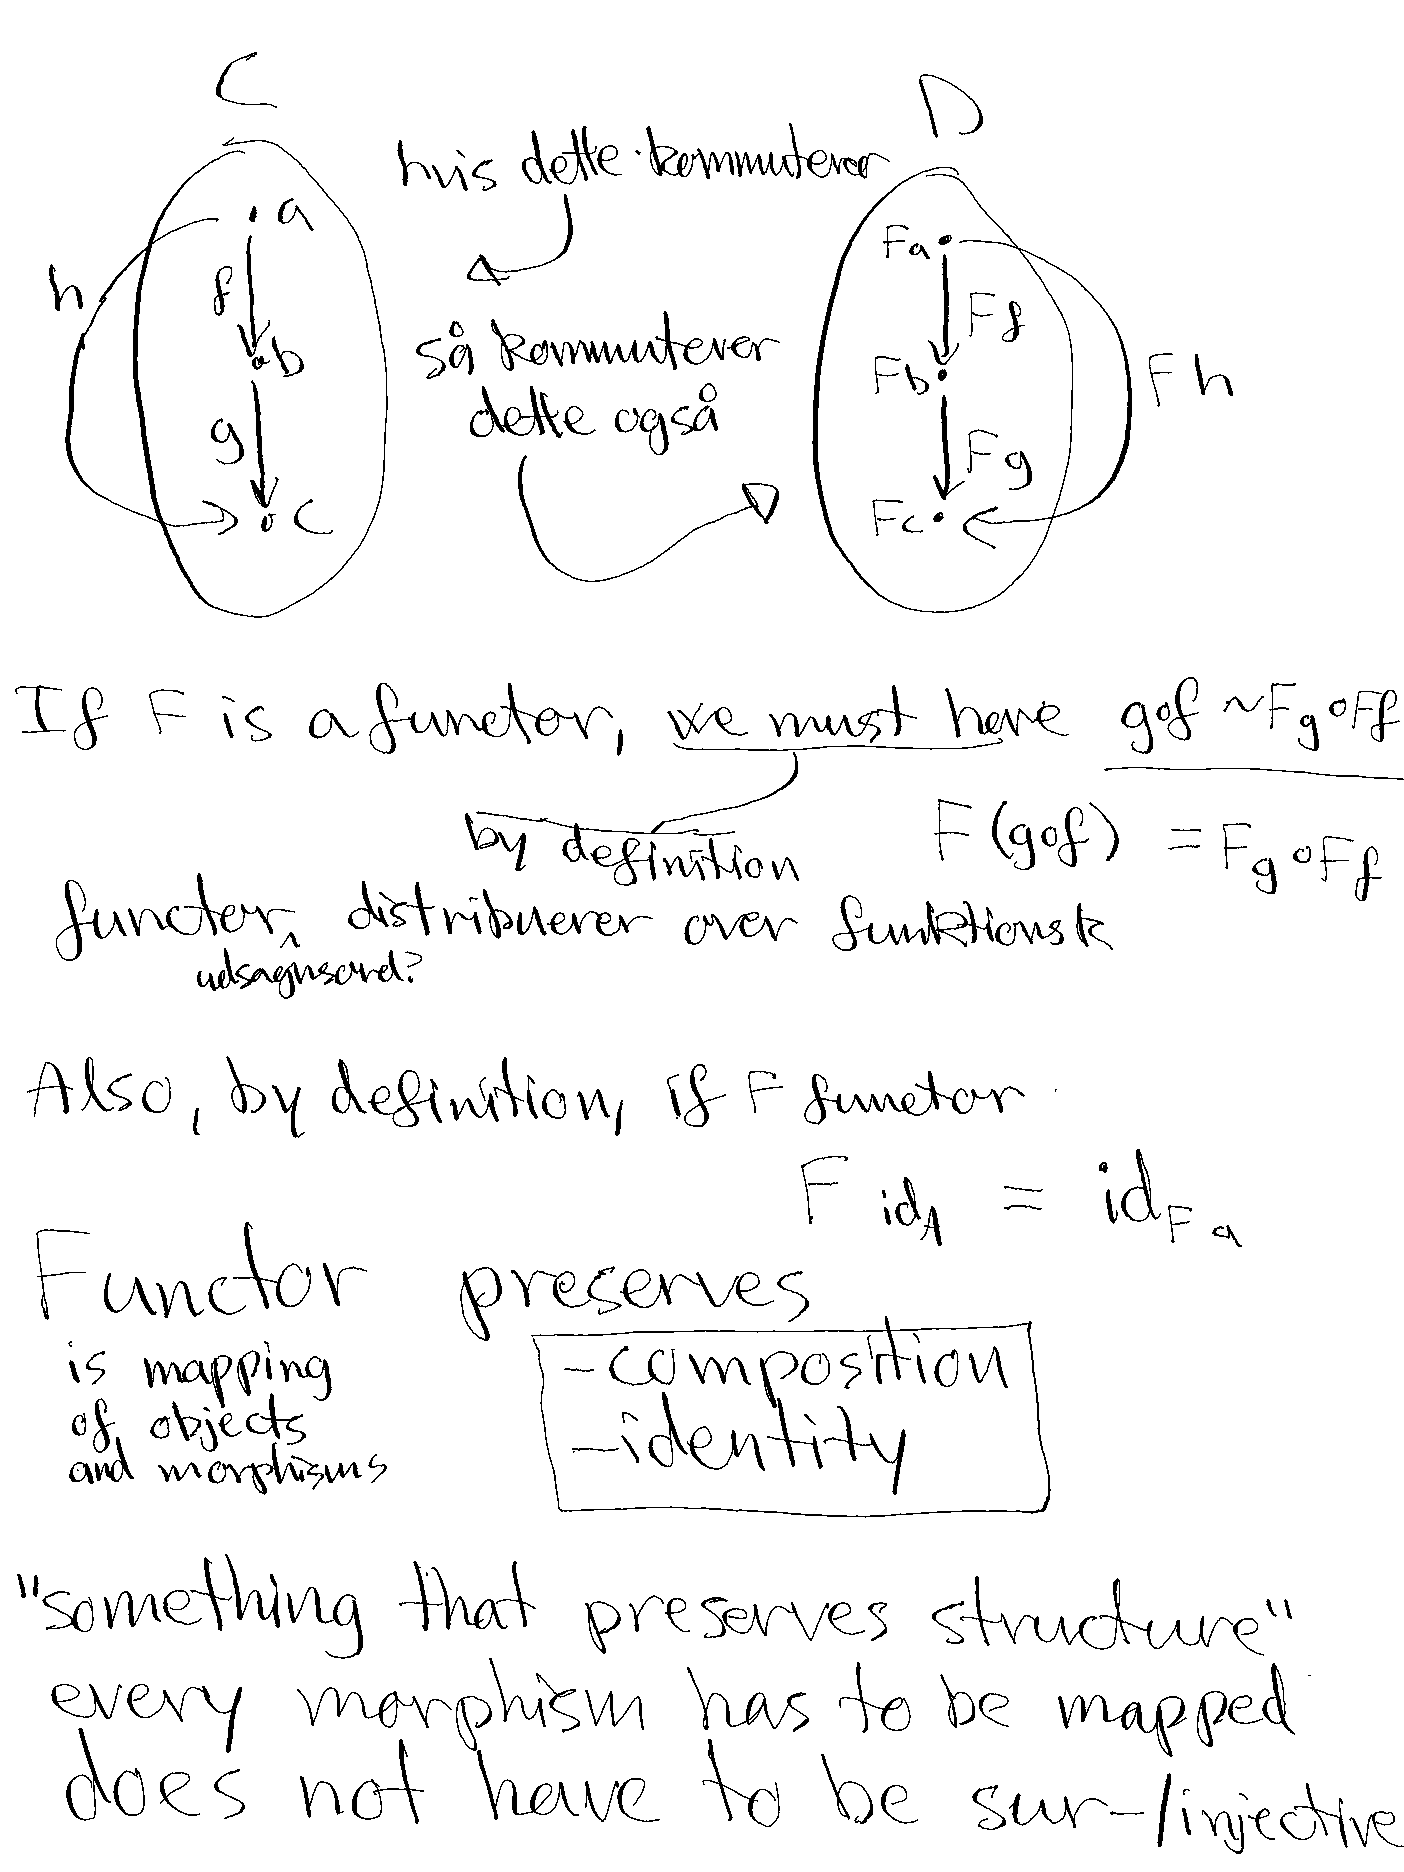 C
D
hvis dette kommuterer
a
h
f
b
g
c
så kommuterer
dette også
Fa
Ff
Fb
Fh
Fg
Fc
If F is a functor, we must have g∘f ~ Fg∘Ff
by definition
F(g∘f) = Fg∘Ff
functor distribuerer over funktionsk
udsagnsord?
Also, by definition, if F functor
F id_A = id_Fa
Functor preserves
is mapping
of objects
and morphisms
-composition
-identity
"something that preserves structure"
every morphism has to be mapped
does not have to be sur-/injective